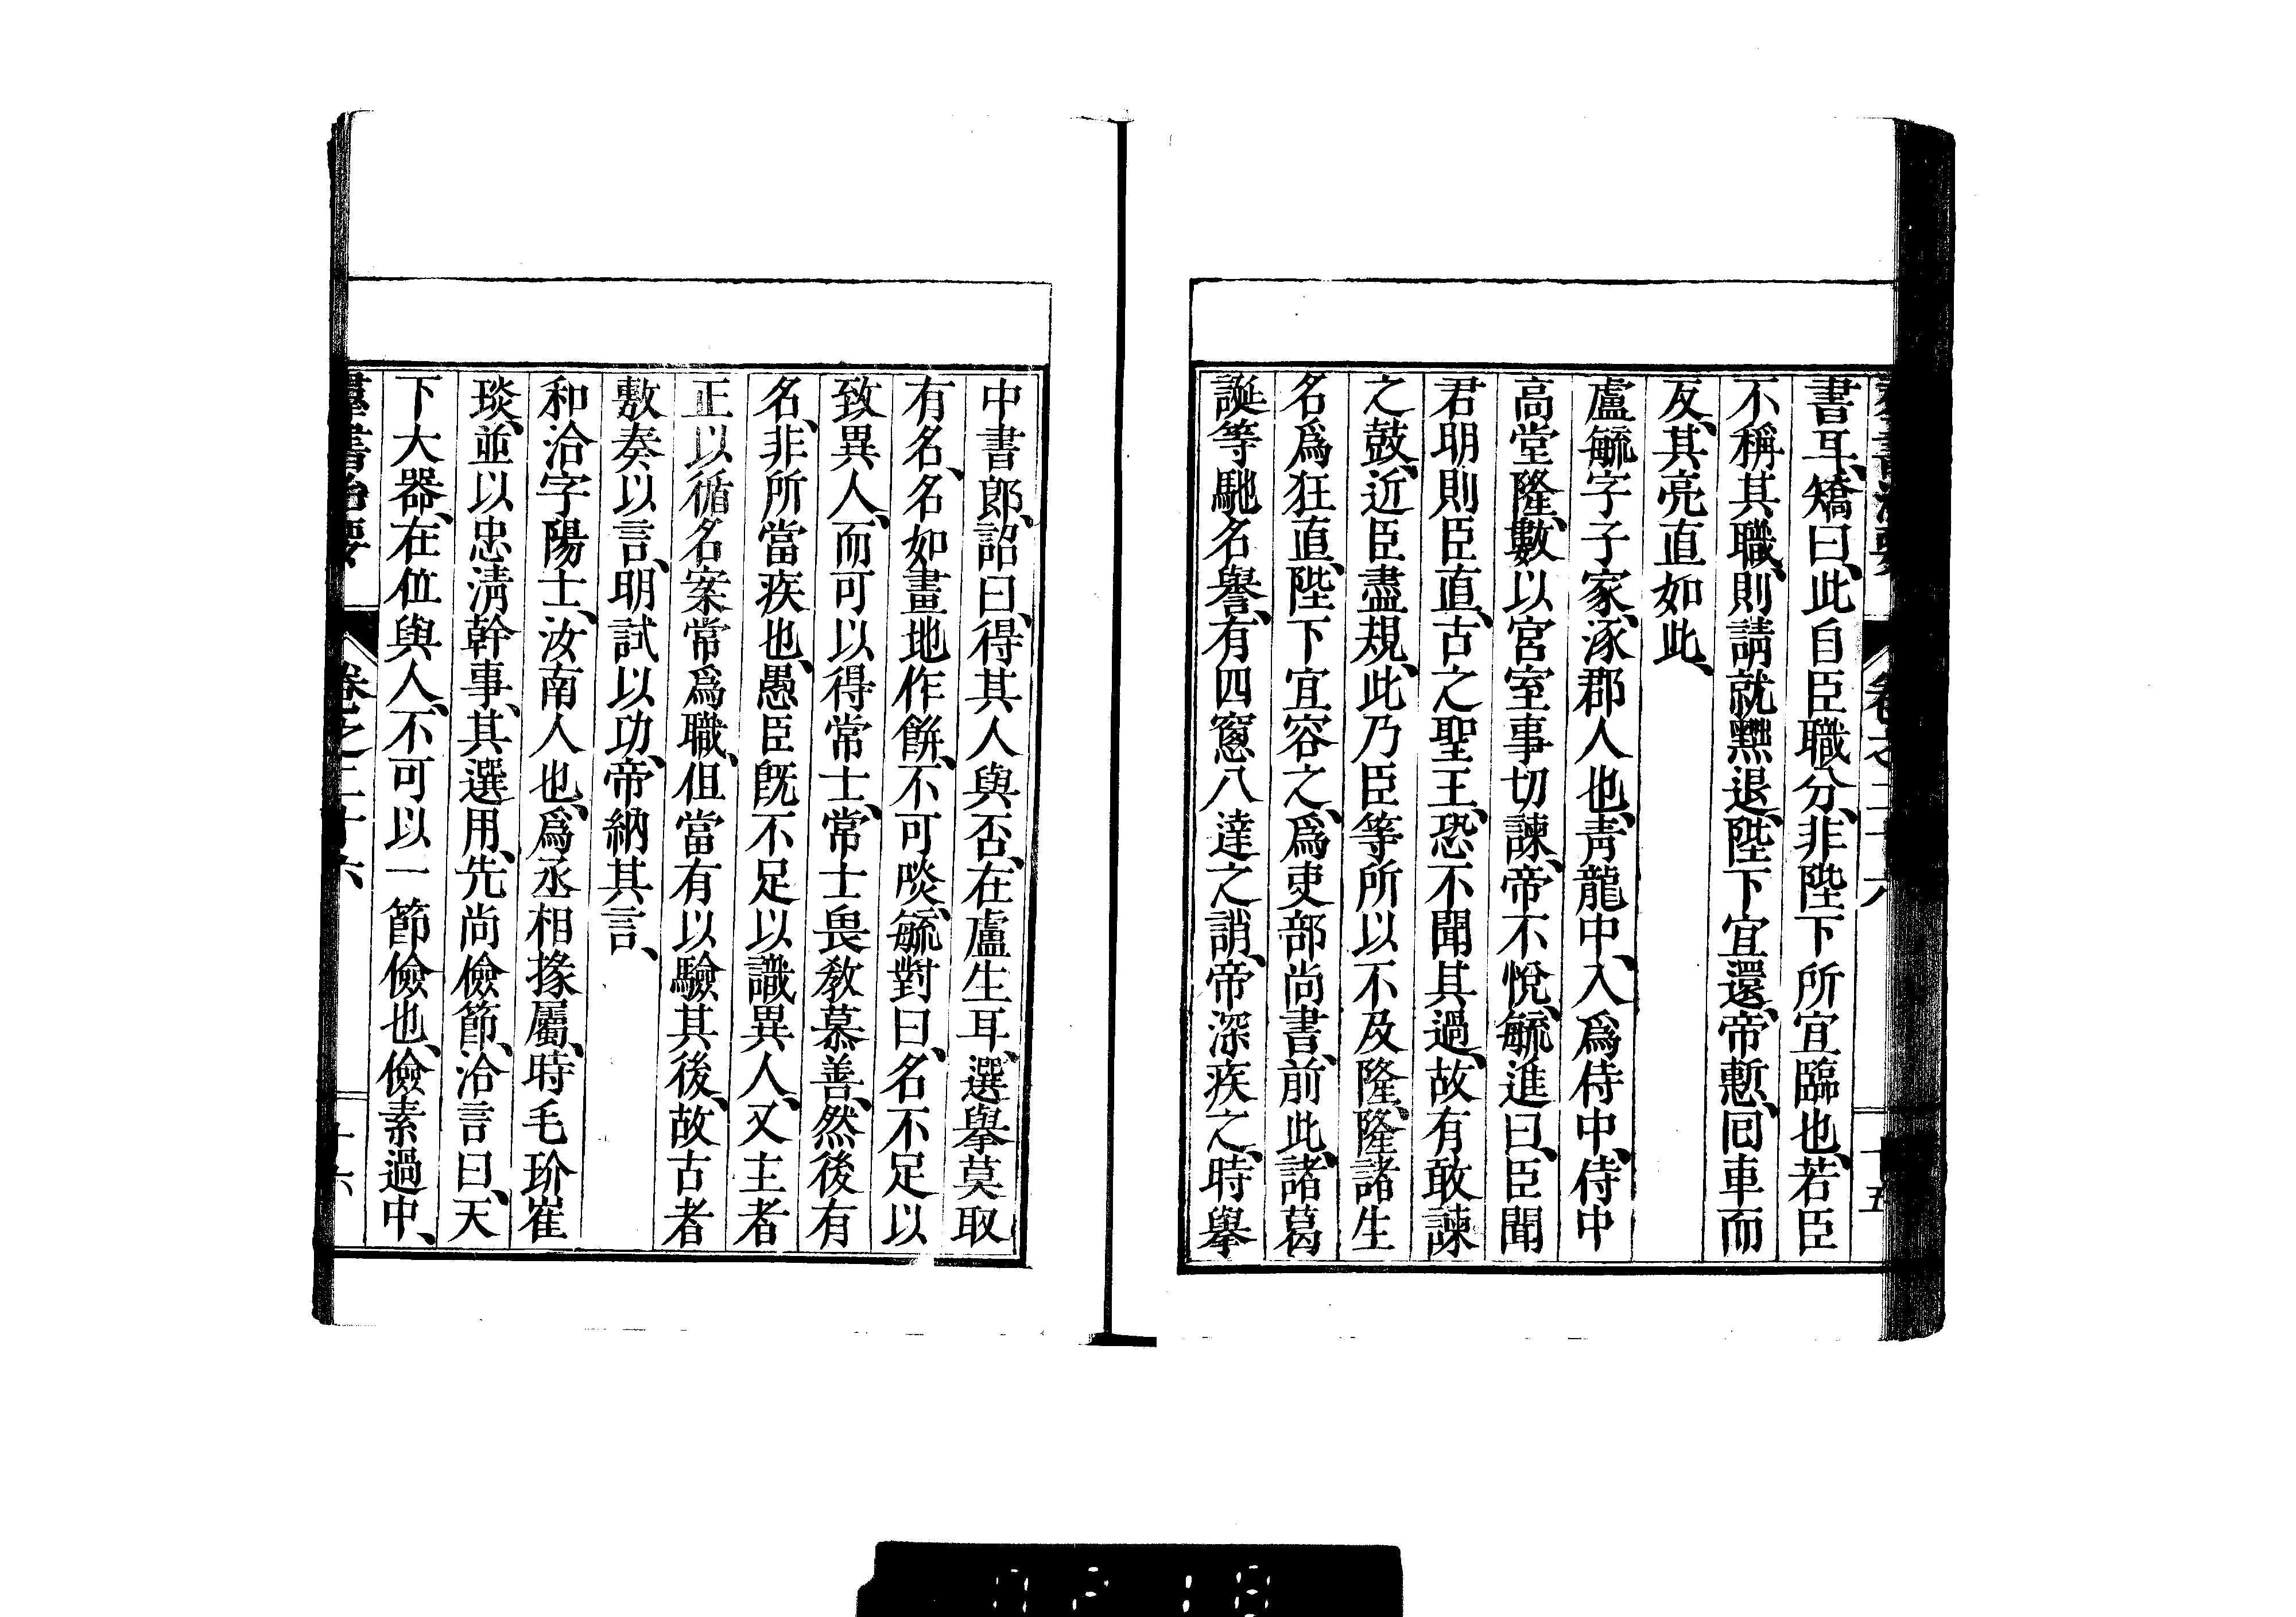 羣書治要 卷之二十六 十五
書耳、矯曰、此自臣職分、非陛下所宜臨也、若臣
不稱其職、則請就黜退、陛下宜還、帝慙、囘車而
反、其亮直如此、
盧毓字子家、涿郡人也、青龍中、入爲侍中、侍中
高堂隆、數以宮室事切諫、帝不悅、毓進曰、臣聞
君明則臣直、古之聖王、恐不聞其過、故有敢諫
之鼓、近臣盡規、此乃臣等所以不及隆、隆諸生
名爲狂直、陛下宜容之、爲吏部尚書、前此、諸葛
誕等馳名譽、有四窻八達之誚、帝深疾之、時擧
中書郎、詔曰、得其人與否、在盧生耳、選擧莫取
有名、名如畫地作餠、不可啖、毓對曰、名不足以
致異人、而可以得常士、常士畏敎慕善、然後有
名、非所當疾也、愚臣旣不足以識異人、又主者
正以循名案常爲職、但當有以驗其後、故古者
敷奏以言、明試以功、帝納其言、
和洽字陽士、汝南人也、爲丞相掾屬、時毛玠崔
琰、並以忠淸幹事、其選用、先尚儉節、洽言曰、天
下大器、在位與人、不可以一節儉也、儉素過中、
羣書治要 卷之二十六 十六